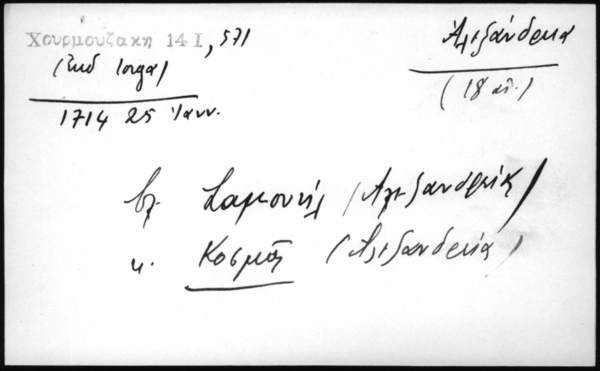 Χουρμουζακη 14 Ι, 571
(ἐκδ Iorga)
1714 25 Ἰανν.
Ἀλεξάνδρεια
(18 αἰ.)
βλ. Σαμουήλ (Ἀλεξανδρείας)
κ. Κοσμᾶς (Ἀλεξανδρεία)